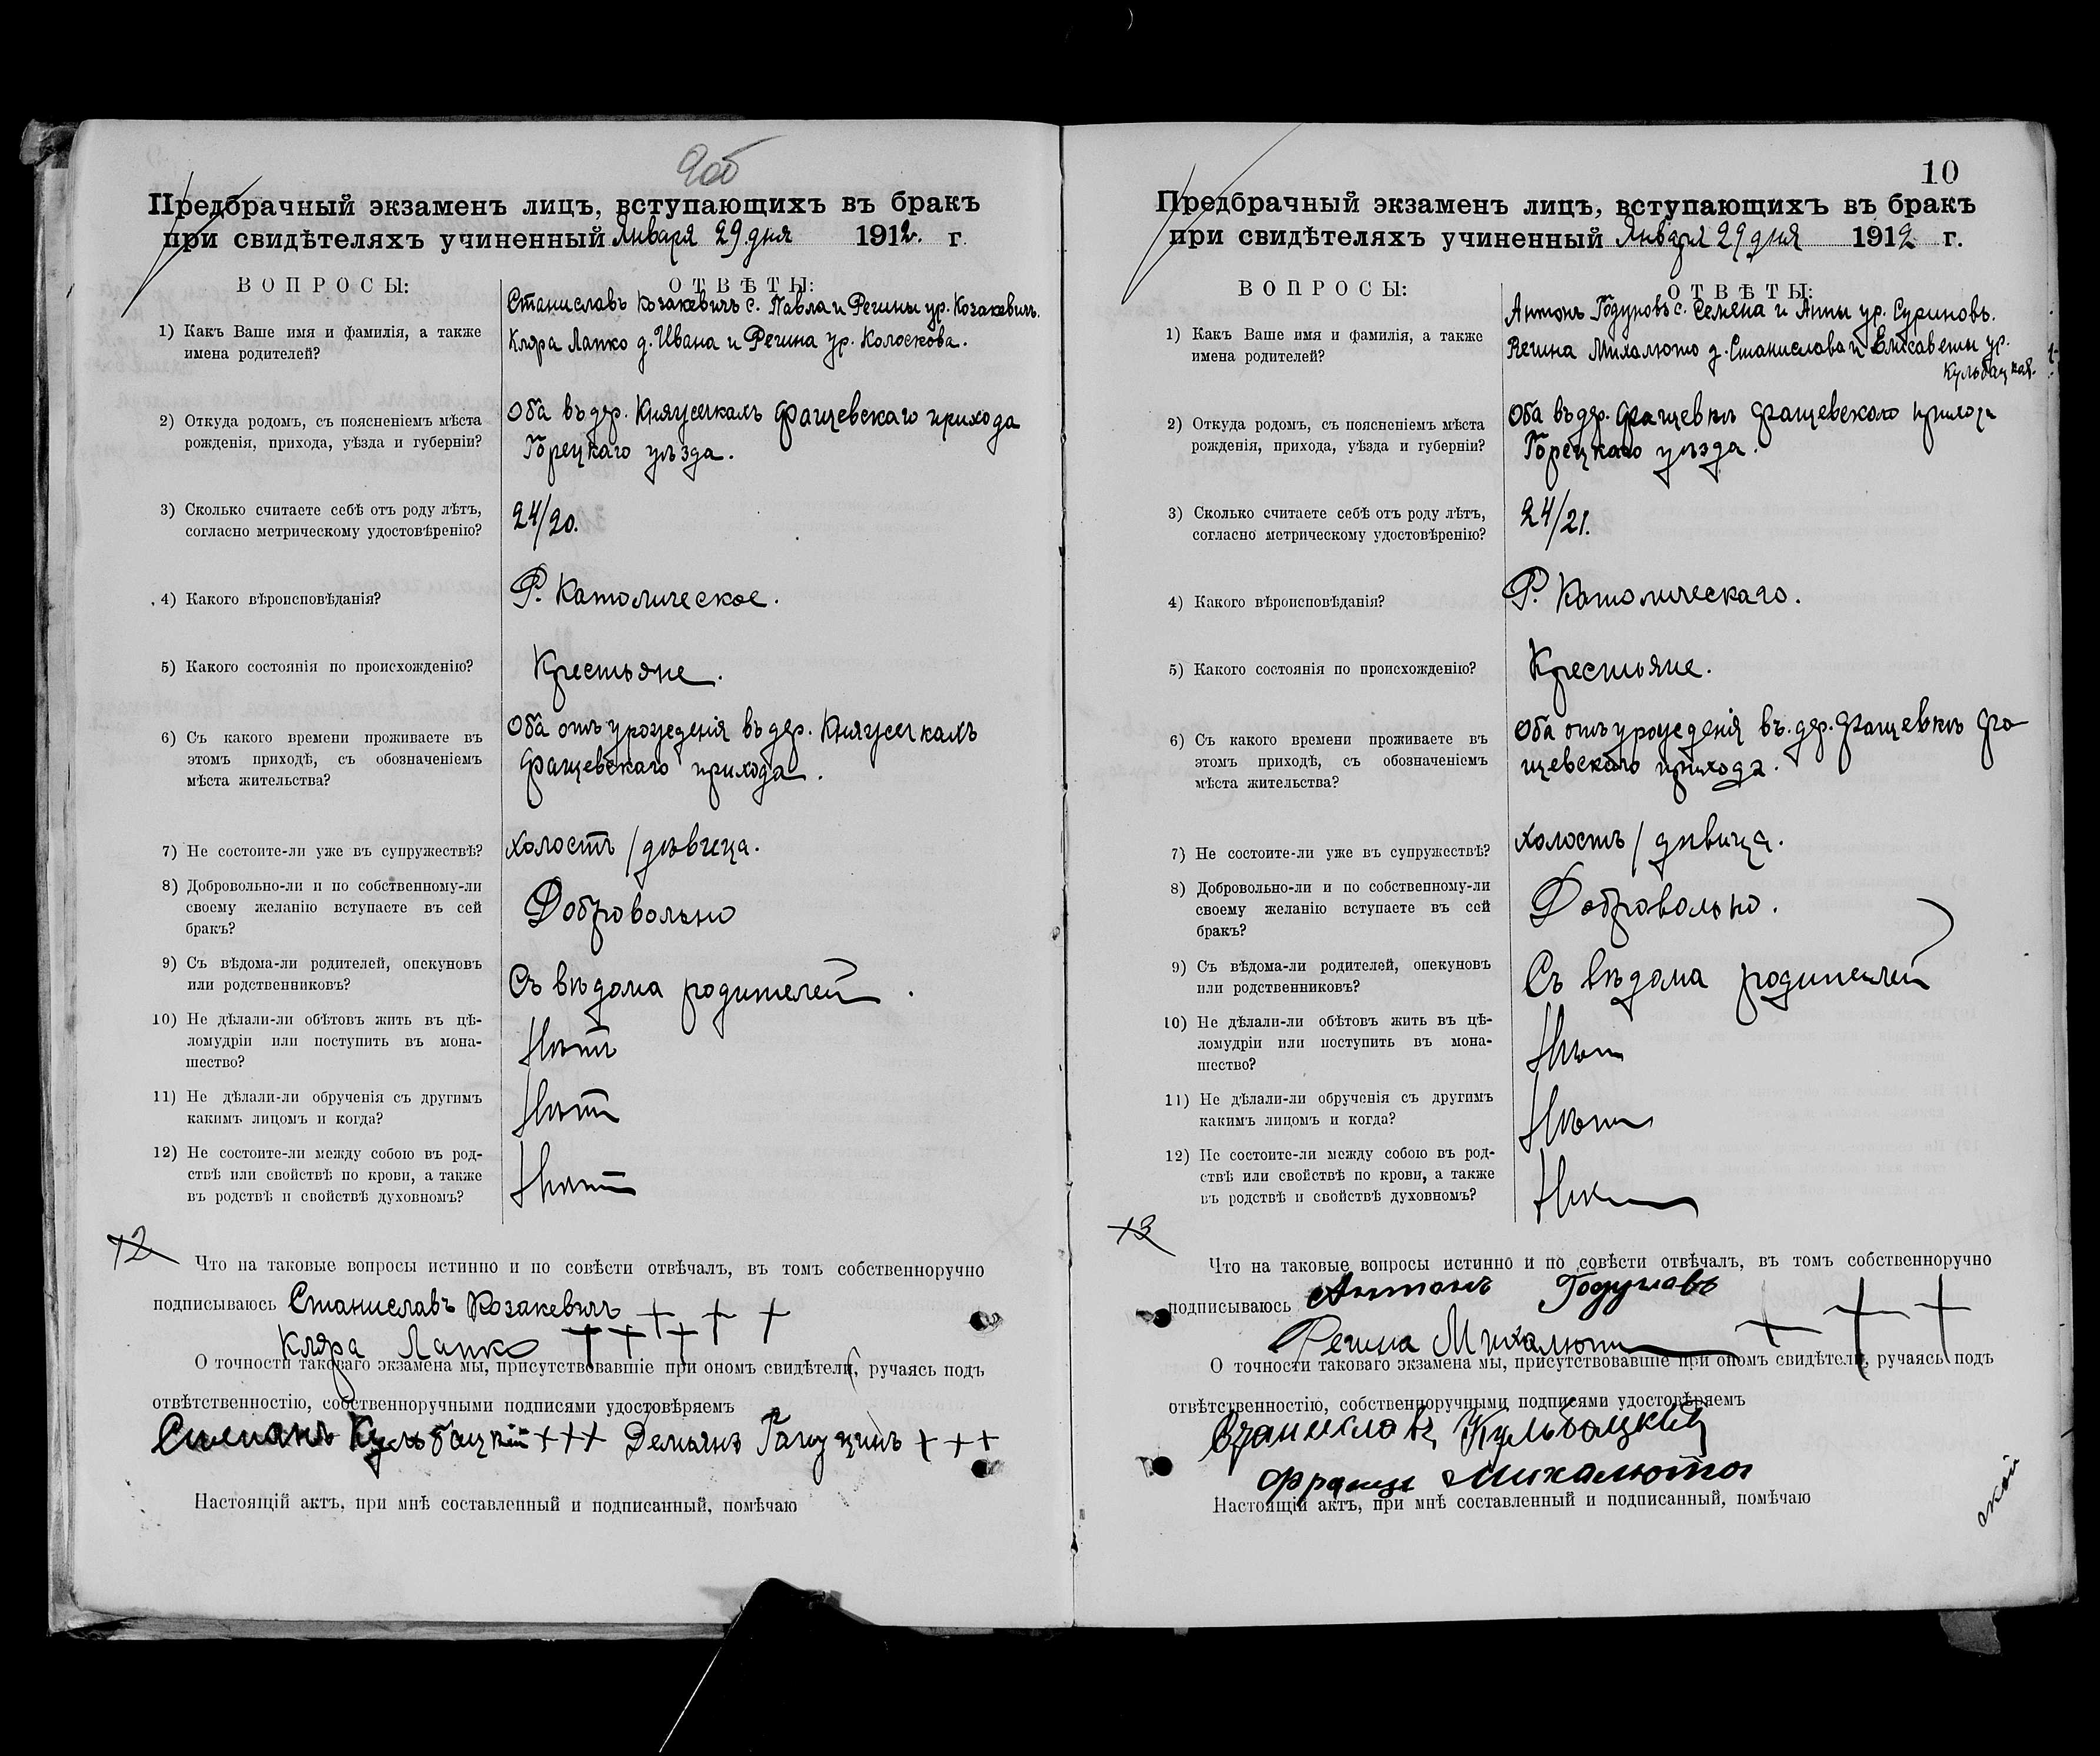 9об
Предбрачный экзаменъ лицъ, вступающихъ въ бракъ
при свидѣтеляхъ учиненный Января 29 дня 1912. г
ВОПРОСЫ:
ОТВѢТЫ:
1) Какъ Ваше имя и фамилія, а также
имена родителей?
Станиславъ Козакевичъ с. Павла и Регины ур. Козакевичъ.
Кляра Лапко д. Ивана и Регина ур. Колоскова.
2) Откуда родомъ, съ поясненіемъ мѣста
рожденія, прихода, уѣзда и губерніи?
Оба въ дер. Княжичкахъ Фащевскаго прихода
Горецкаго уѣзда.
3) Сколько считаете себѣ отъ роду лѣтъ,
согласно метрическому удостовѣренію?
24/20.
4) Какого вѣроисповѣданія?
Р. Католическое.
5) Какого состоянія по происхожденію?
Крестьяне.
6) Съ какого времени проживаете въ
этомъ приходѣ, съ обозначеніемъ
мѣста жительства?
Оба отъ урожденія въ дер. Княжичкахъ
Фащевскаго прихода.
7) Не состоите-ли уже въ супружествѣ?
холостъ / дѣвица.
8) Добровольно-ли и по собственному-ли
своему желанію вступаете въ сей
бракъ?
Добровольно
9) Съ вѣдома-ли родителей, опекуновъ
или родственниковъ?
Съ вѣдома родителей.
10) Не дѣлали-ли обѣтовъ жить въ цѣ-
ломудріи или поступить въ мона-
шество?
Нѣтъ
11) Не дѣлали-ли обрученія съ другимъ
какимъ лицомъ и когда?
Нѣтъ
12) Не состоите-ли между собою въ род-
ствѣ или свойствѣ по крови, а также
въ родствѣ и свойствѣ духовномъ?
Нѣтъ
12
Что на таковые вопросы истинно и по совѣсти отвѣчалъ, въ томъ собственноручно
подписываюсь Станиславъ Козакевичъ + + +
Кляра Лапко + + +
О точности таковаго экзамена мы, присутствовавшіе при ономъ свидѣтели, ручаясь подъ
отвѣтственностію, собственноручными подписями удостовѣряемъ
Степанъ Кульбацкій +++ Демьянъ +++
Настоящій актъ, при мнѣ составленный и подписанный, помѣчаю
10
Предбрачный экзаменъ лицъ, вступающихъ въ бракъ
при свидѣтеляхъ учиненный Января 29 дня 1912 г.
ВОПРОСЫ:
ОТВѢТЫ:
1) Какъ Ваше имя и фамилія, а также
имена родителей?
Антонъ Годуновъ с. Семена и Анны ур. Суриновъ.
Регина Михалюто д. Станислава и Елисаветы ур.
Кульбацкая.
2) Откуда родомъ, съ поясненіемъ мѣста
рожденія, прихода, уѣзда и губерніи?
Оба въ дер. Фащевкѣ Фащевского прихода
Горецкаго уѣзда.
3) Сколько считаете себѣ отъ роду лѣтъ,
согласно метрическому удостовѣренію?
24/21.
4) Какого вѣроисповѣданія?
Р. Католическаго.
5) Какого состоянія по происхожденію?
Крестьяне.
6) Съ какого времени проживаете въ
этомъ приходѣ, съ обозначеніемъ
мѣста жительства?
Оба отъ урожденія въ дер. Фащевкѣ Фа
щевскаго прихода.
7) Не состоите-ли уже въ супружествѣ?
холостъ / дѣвица.
8) Добровольно-ли и по собственному-ли
своему желанію вступаете въ сей
бракъ?
Добровольно.
9) Съ вѣдома-ли родителей, опекуновъ
или родственниковъ?
Съ вѣдома родителей
10) Не дѣлали-ли обѣтовъ жить въ цѣ-
ломудріи или поступить въ мона-
шество?
Нѣтъ
11) Не дѣлали-ли обрученія съ другимъ
какимъ лицомъ и когда?
Нѣтъ
12) Не состоите-ли между собою въ род-
ствѣ или свойствѣ по крови, а также
въ родствѣ и свойствѣ духовномъ?
Нѣтъ
13
Что на таковые вопросы истинно и по совѣсти отвѣчалъ, въ томъ собственноручно
подписываюсь Антонъ Годуновъ
Регина Михалюто + + +
О точности таковаго экзамена мы, присутствовавшіе при ономъ свидѣтели, ручаясь подъ
отвѣтственностію, собственноручными подписями удостовѣряемъ
Кульбацкій
Францъ Михалюто
Настоящій актъ, при мнѣ составленный и подписанный, помѣчаю